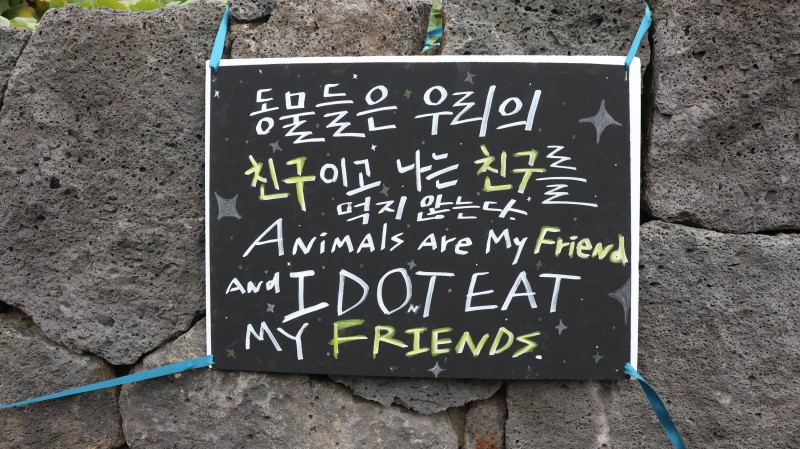 동물들은 우리의
친구이고 나는 친구를
먹지 않는다.
ANiMALS ARE My FRiend
AND I DO NOT EAT
MY FRIENDS.